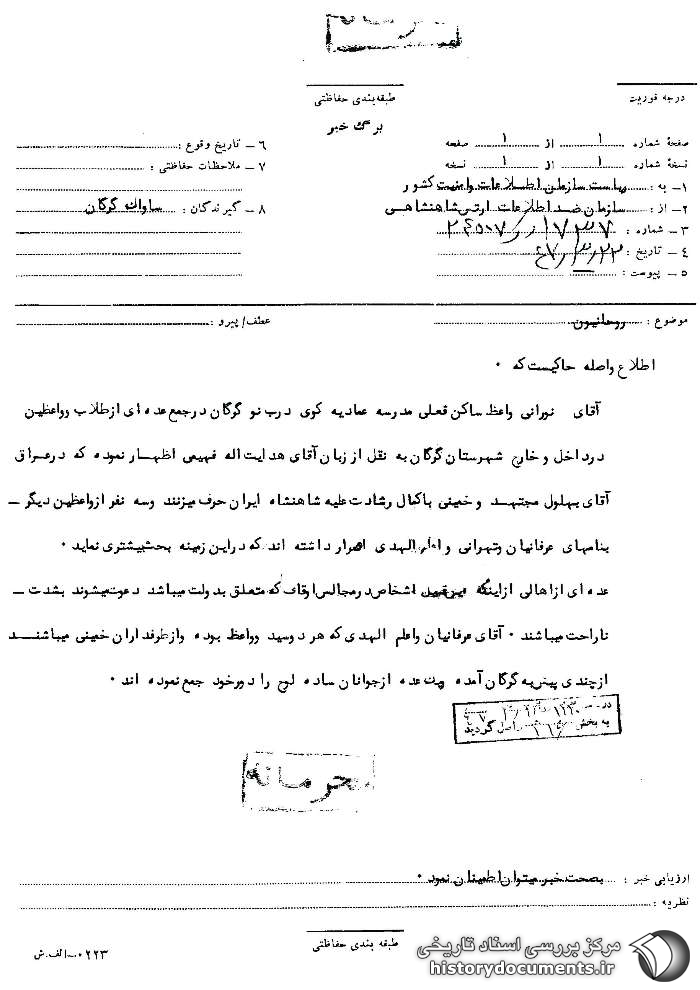 درجه فوریت
طبقه‌بندی حفاظتی
برگ خبر
صفحهٔ شماره ۱ از ۱ صفحه
نسخهٔ شماره ۱ از ۱ نسخه
۱ـ به : ریاست سازمان اطلاعات وامنیت کشور
۲ـ از : سازمان ضد اطلاعات ارتش شاهنشاهی
۳ـ شماره :
۴ـ تاریخ : ۴۷٫۳٫۲۲
۵ـ پیوست : ـ
۶ـ تاریخ وقوع :
۷ـ ملاحظات حفاظتی :
۸ـ گیرندگان : ساواک گرگان
موضوع : روحانیون
عطف/پیرو :
اطلاع واصله حاکیست که ۰
آقای نورانی واعظ ساکن فعلی مدرسه عمادیه کوی درب نو گرگان درجمع عده ای ازطلاب وواعظین
درداخل و خارج شهرستان گرگان به نقل از زبان آقای هدایت اله فهیمی اظهار نموده که درعراق
آقای بهلول مجتهد و خمینی باکمال رشادت علیه شاهنشاه ایران حرف میزنند وسه نفر ازواعظین دیگر ـ
بنامهای عرفانیان وتهرانی و اعلم الهدی اصرار داشته اند که دراین زمینه بحث بیشتری نماید ۰
عده ای ازاهالی ازاینکه این قبیل اشخاص در مجالس اوقاف که متعلق بدولت میباشد دعوت میشوند بشدت ـ
ناراحت میباشند ۰ آقای عرفانیان واعلم الهدی که هر دوسید وواعظ بوده وازطرفداران خمینی میباشند
ازچندی پیش به گرگان آمده و یک عده ازجوانان ساده لوح را دورخود جمع نموده اند ۰
به بخش ۳۱۶ واصل گردید
محرمانه
ارزیابی خبر : بصحت خبر میتوان اطمینان نمود ۰
نظریه :
طبقه بندی حفاظتی
۰۲۲۳ـالف.ش
مرکز بررسی اسناد تاریخی
historydocuments.ir